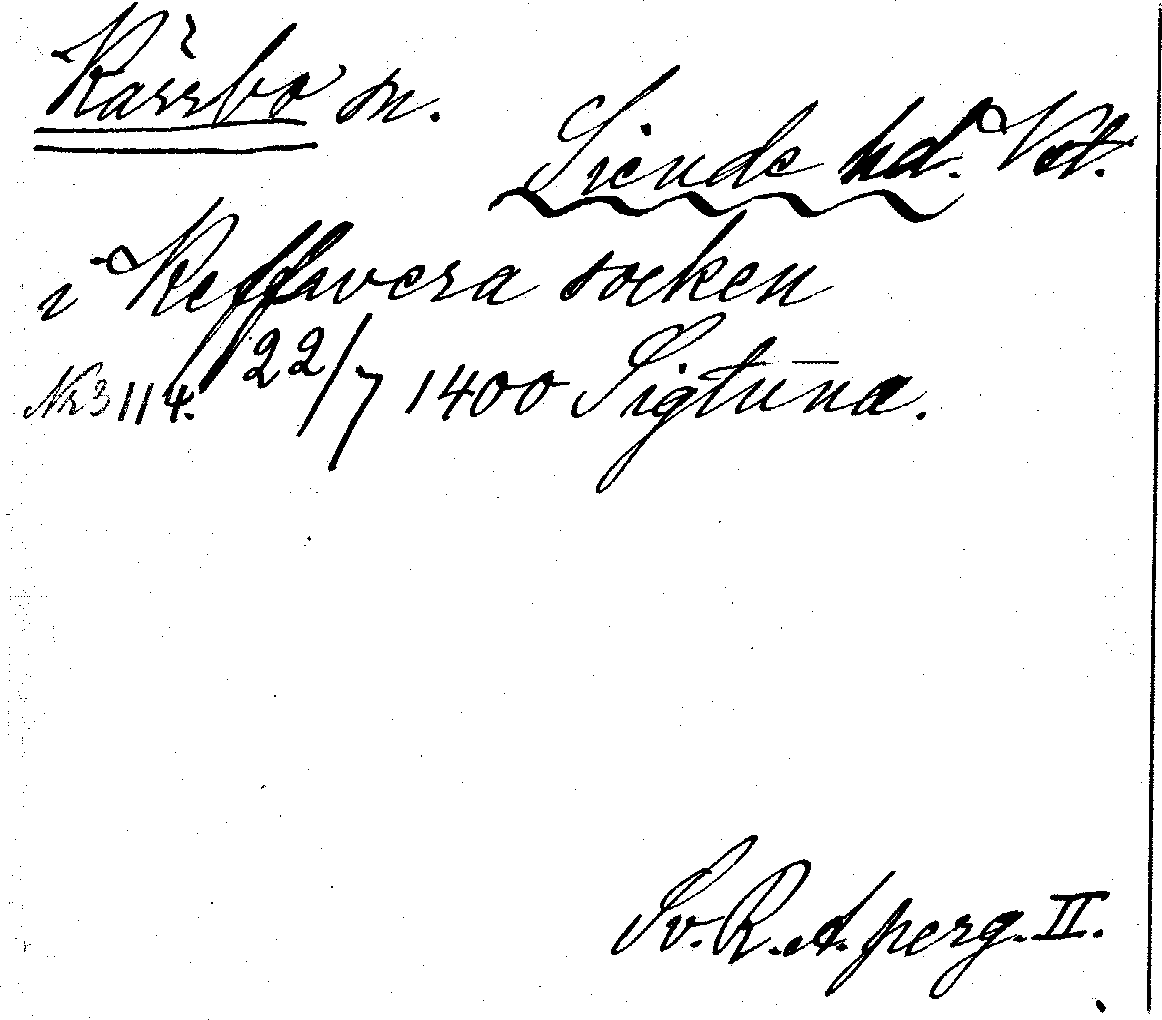 Kärrbo sn.
Siende hd. Vst.
i Keffsvera socken
Nr 3114. 22/7 1400 Sigtuna.
Sv. R. A. perg. II.